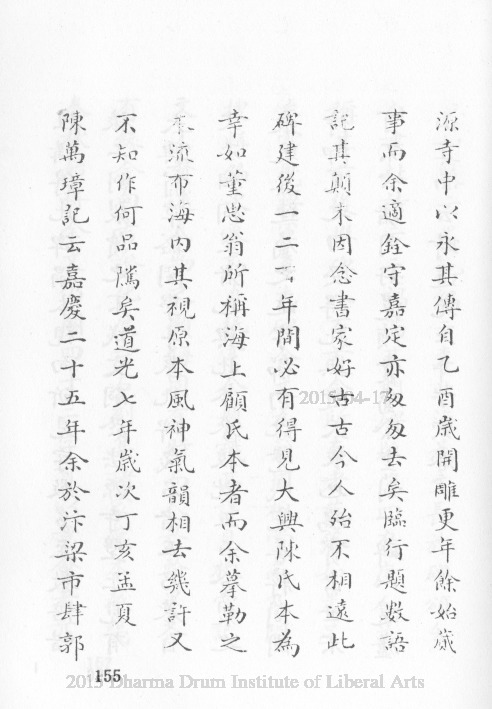 源寺中以永其傳自乙酉歲開雕更年餘始歲
事而余適銓守嘉定亦匆匆去矣臨行題數語
記其顛末因念書家好古古今人殆不相遠此
碑建後一二百年間必有得見大興陳氏本為
幸如董思翁所稱海上顧氏本者而余摹勒之
本流布海内其視原本風神氣韻相去幾許又
不知作何品隲矣道光七年歲次丁亥孟夏
陳萬璋記云嘉慶二十五年余於汴梁市肆郭
155
2015-04-17
2015 Dharma Drum Institute of Liberal Arts